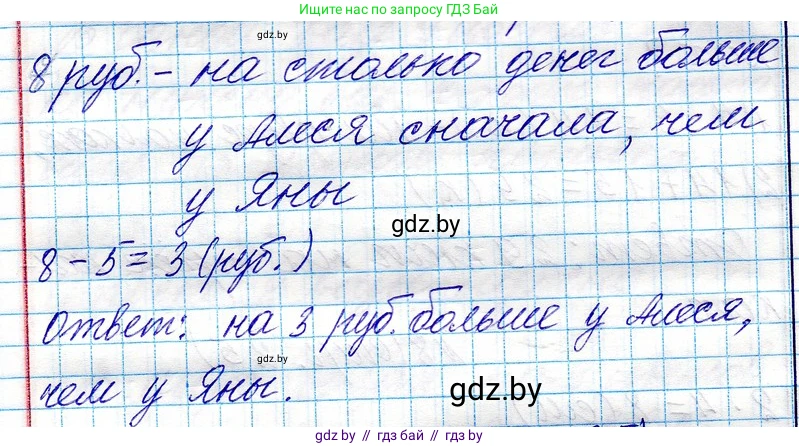 Ищите нас по запросу ГДЗ Бай
gdz.by
8 руб. – на столько денег больше
у Алеся сначала, чем
у Яны
gdz.by
8 - 5 = 3 (руб.)
ответ: на 3 руб. больше у Алеся,
gdz.by
чем у Яны.
gdz.by
gdz.by // гдз бай // gdz.by